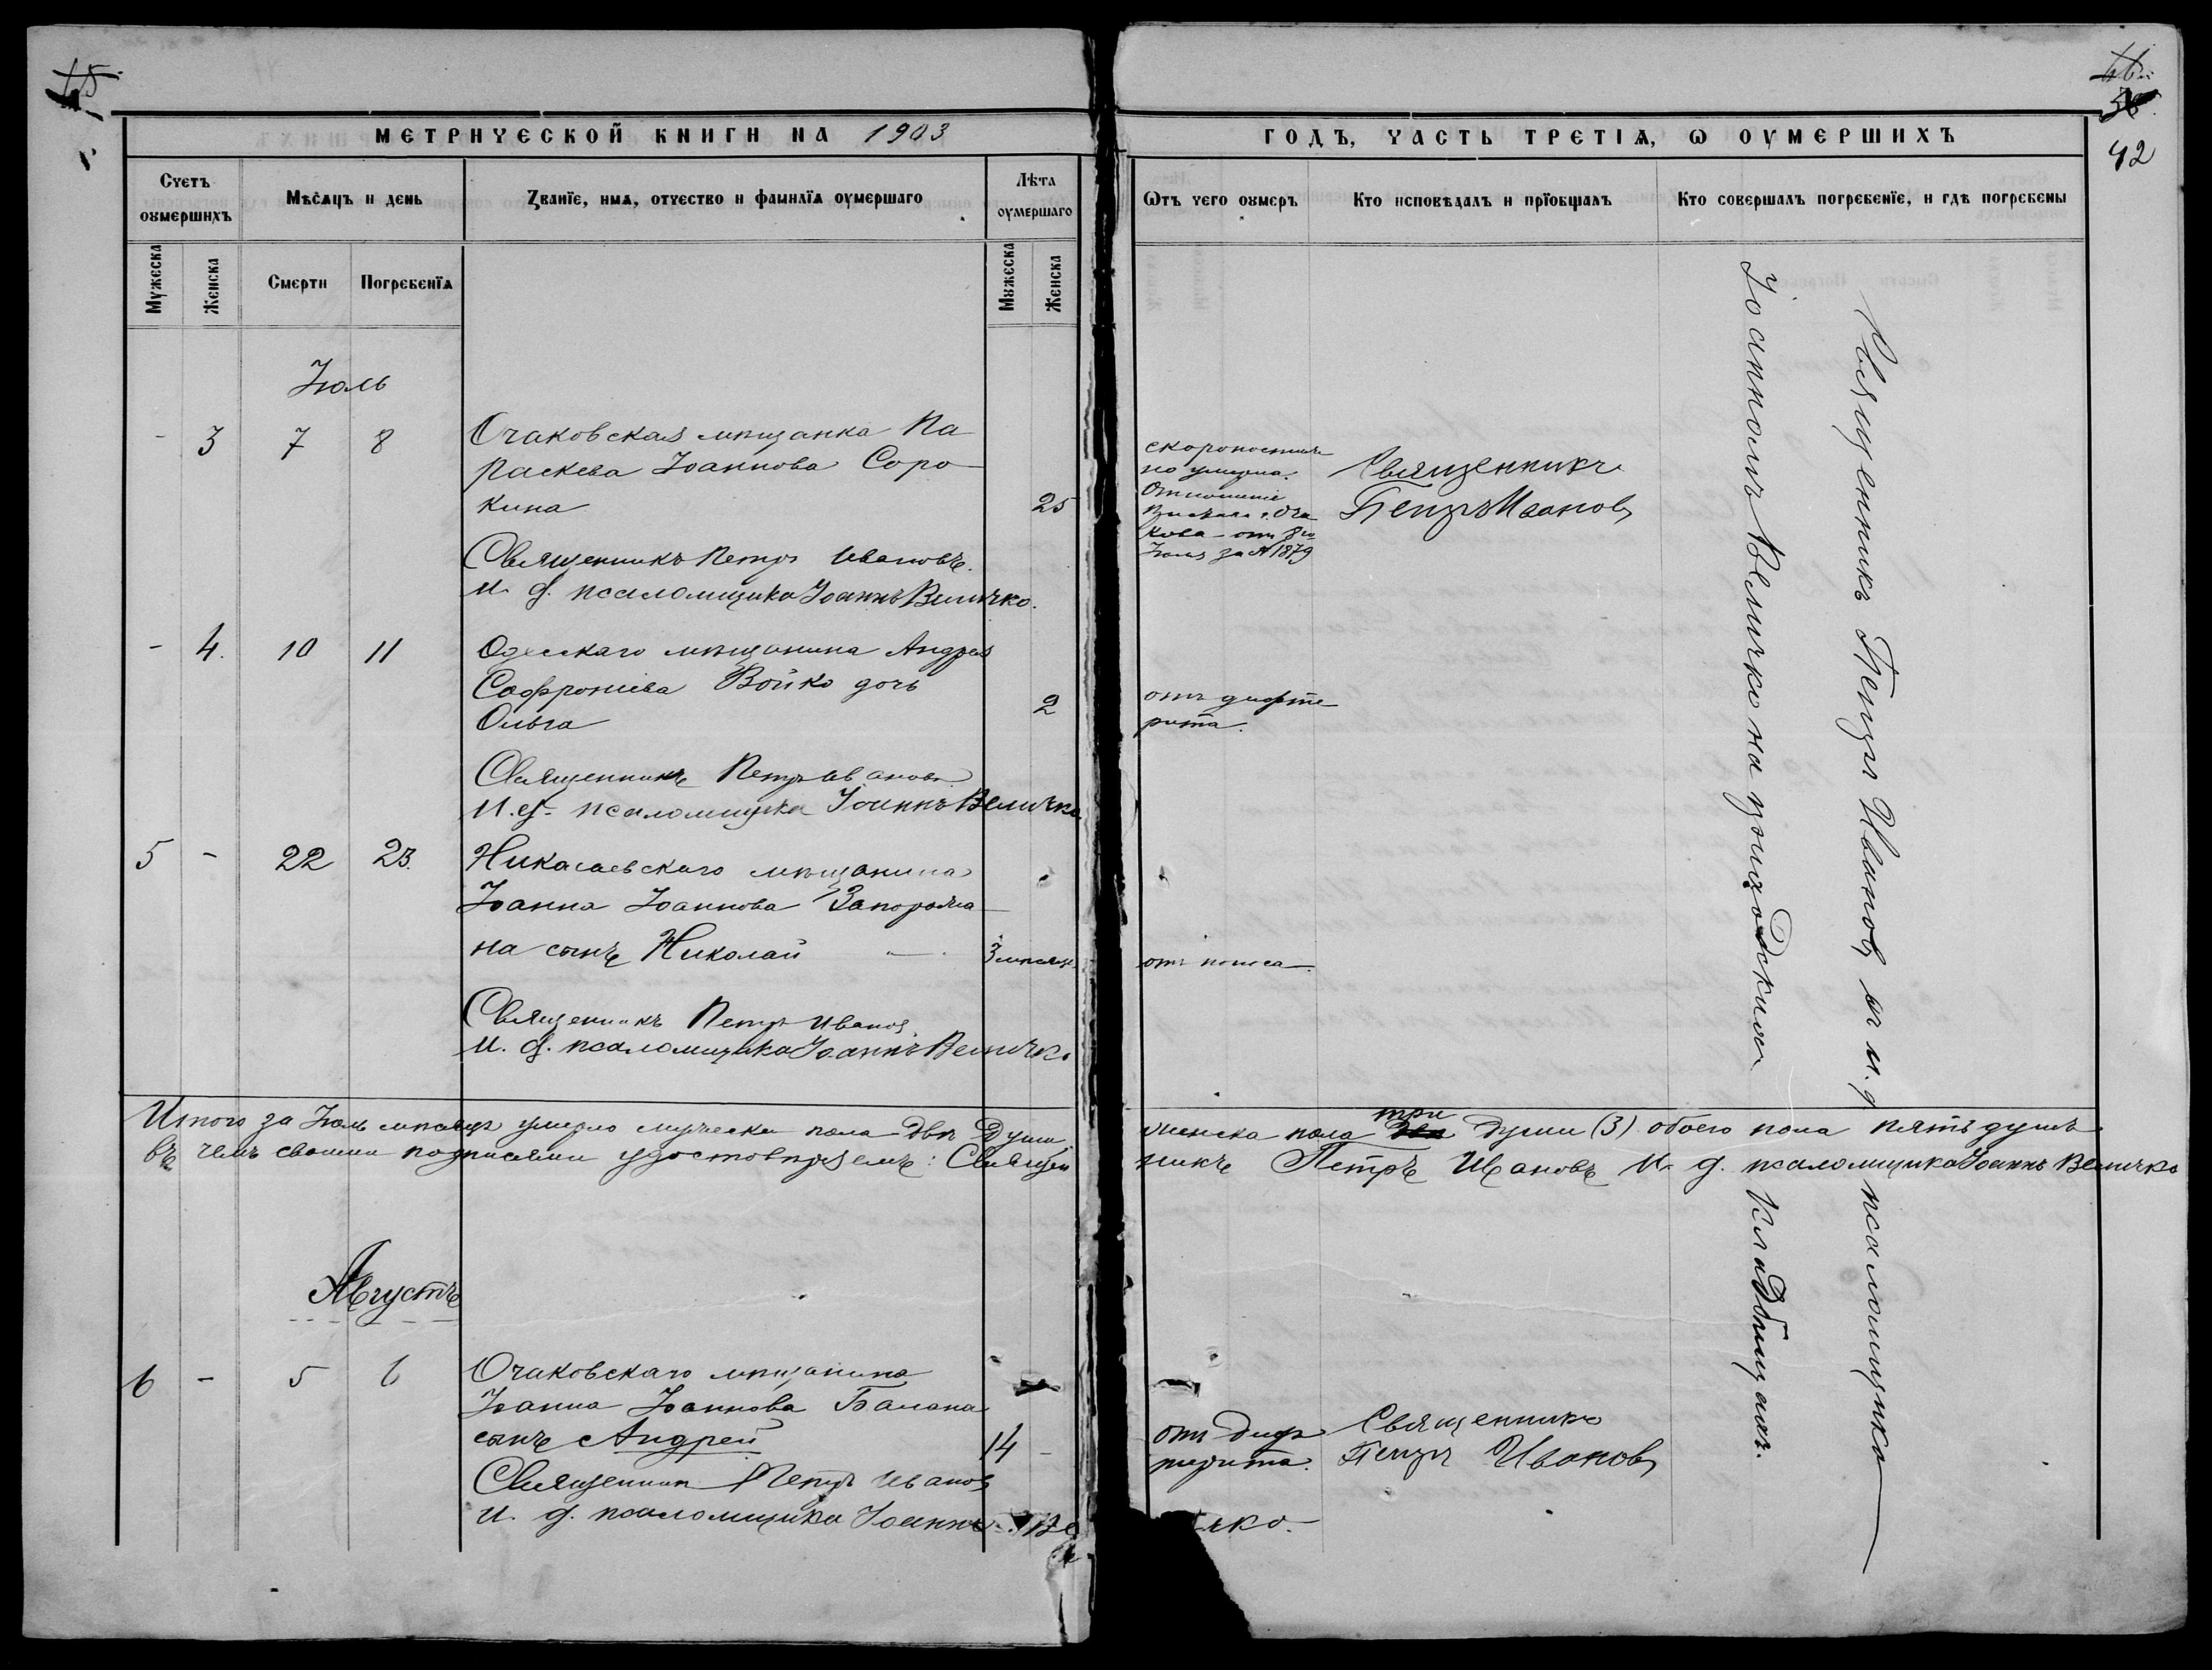 45
46
42
МЕТРИЧЕСКОЙ КНИГИ НА 1903
ГОДЪ, ЧАСТЬ ТРЕТІѦ, Ѡ ОУМЕРШИХЪ
Счетъ оумершихъ
Мѣсѧцъ и день
Званїе, имѧ, отчество и фамилїѧ оумершаго
Лѣта оумершаго
Ѿтъ чего оумеръ
Кто исповѣдалъ и прїобщалъ
Кто совершалъ погребенїе, и гдѣ погребены
Мужеска
Женска
Смерти
Погребенїѧ
Мужеска
Женска
Іюль
- 3 7 8 Очаковская мѣщанка Па
раскева Іоаннова Соро
кина 25
скоропостиж
но умерла.
Отношеніе
г. Оча
кова - отъ 8го
Іюля за № 1879
Священникъ
Петръ Ивановъ
Священникъ Петръ Ивановъ.
И. д. псаломщика Іоаннъ Величко.
- 4. 10 11 Одесскаго мѣщанина Андрея
Софроніева Бойко дочь
Ольга 2
отъ дифте
рита.
Священникъ Петръ Ивановъ
И. д. псаломщика Іоаннъ Величко
5 - 22 23. Николаевскаго мѣщанина
Іоанна Іоаннова Запорожа
на сынъ Николай 3 мѣсяц.
отъ поноса
Священникъ Петръ Ивановъ.
И. д. псаломщика Іоаннъ Величко
Итого за Іюль мѣсяцъ умерло мужеска пола двѣ души
женска пола три души (3) обоего пола пять душъ
въ чемъ своими подписями удостовѣряемъ: Священ
никъ Петръ Ивановъ И. д. псаломщика Іоаннъ Величко
Августъ
6 - 5 6 Очаковскаго мѣщанина
Іоанна Іоаннова Балана
сынъ Андрей 14 -
отъ диф
терита.
Священникъ
Петръ Ивановъ
Священникъ Петръ Ивановъ
И. д. псаломщика Іоаннъ Ве
чко.
Священникъ Петръ Ивановъ съ и. д. псаломщика
Іоанномъ Величко на приходскомъ кладбищѣ.